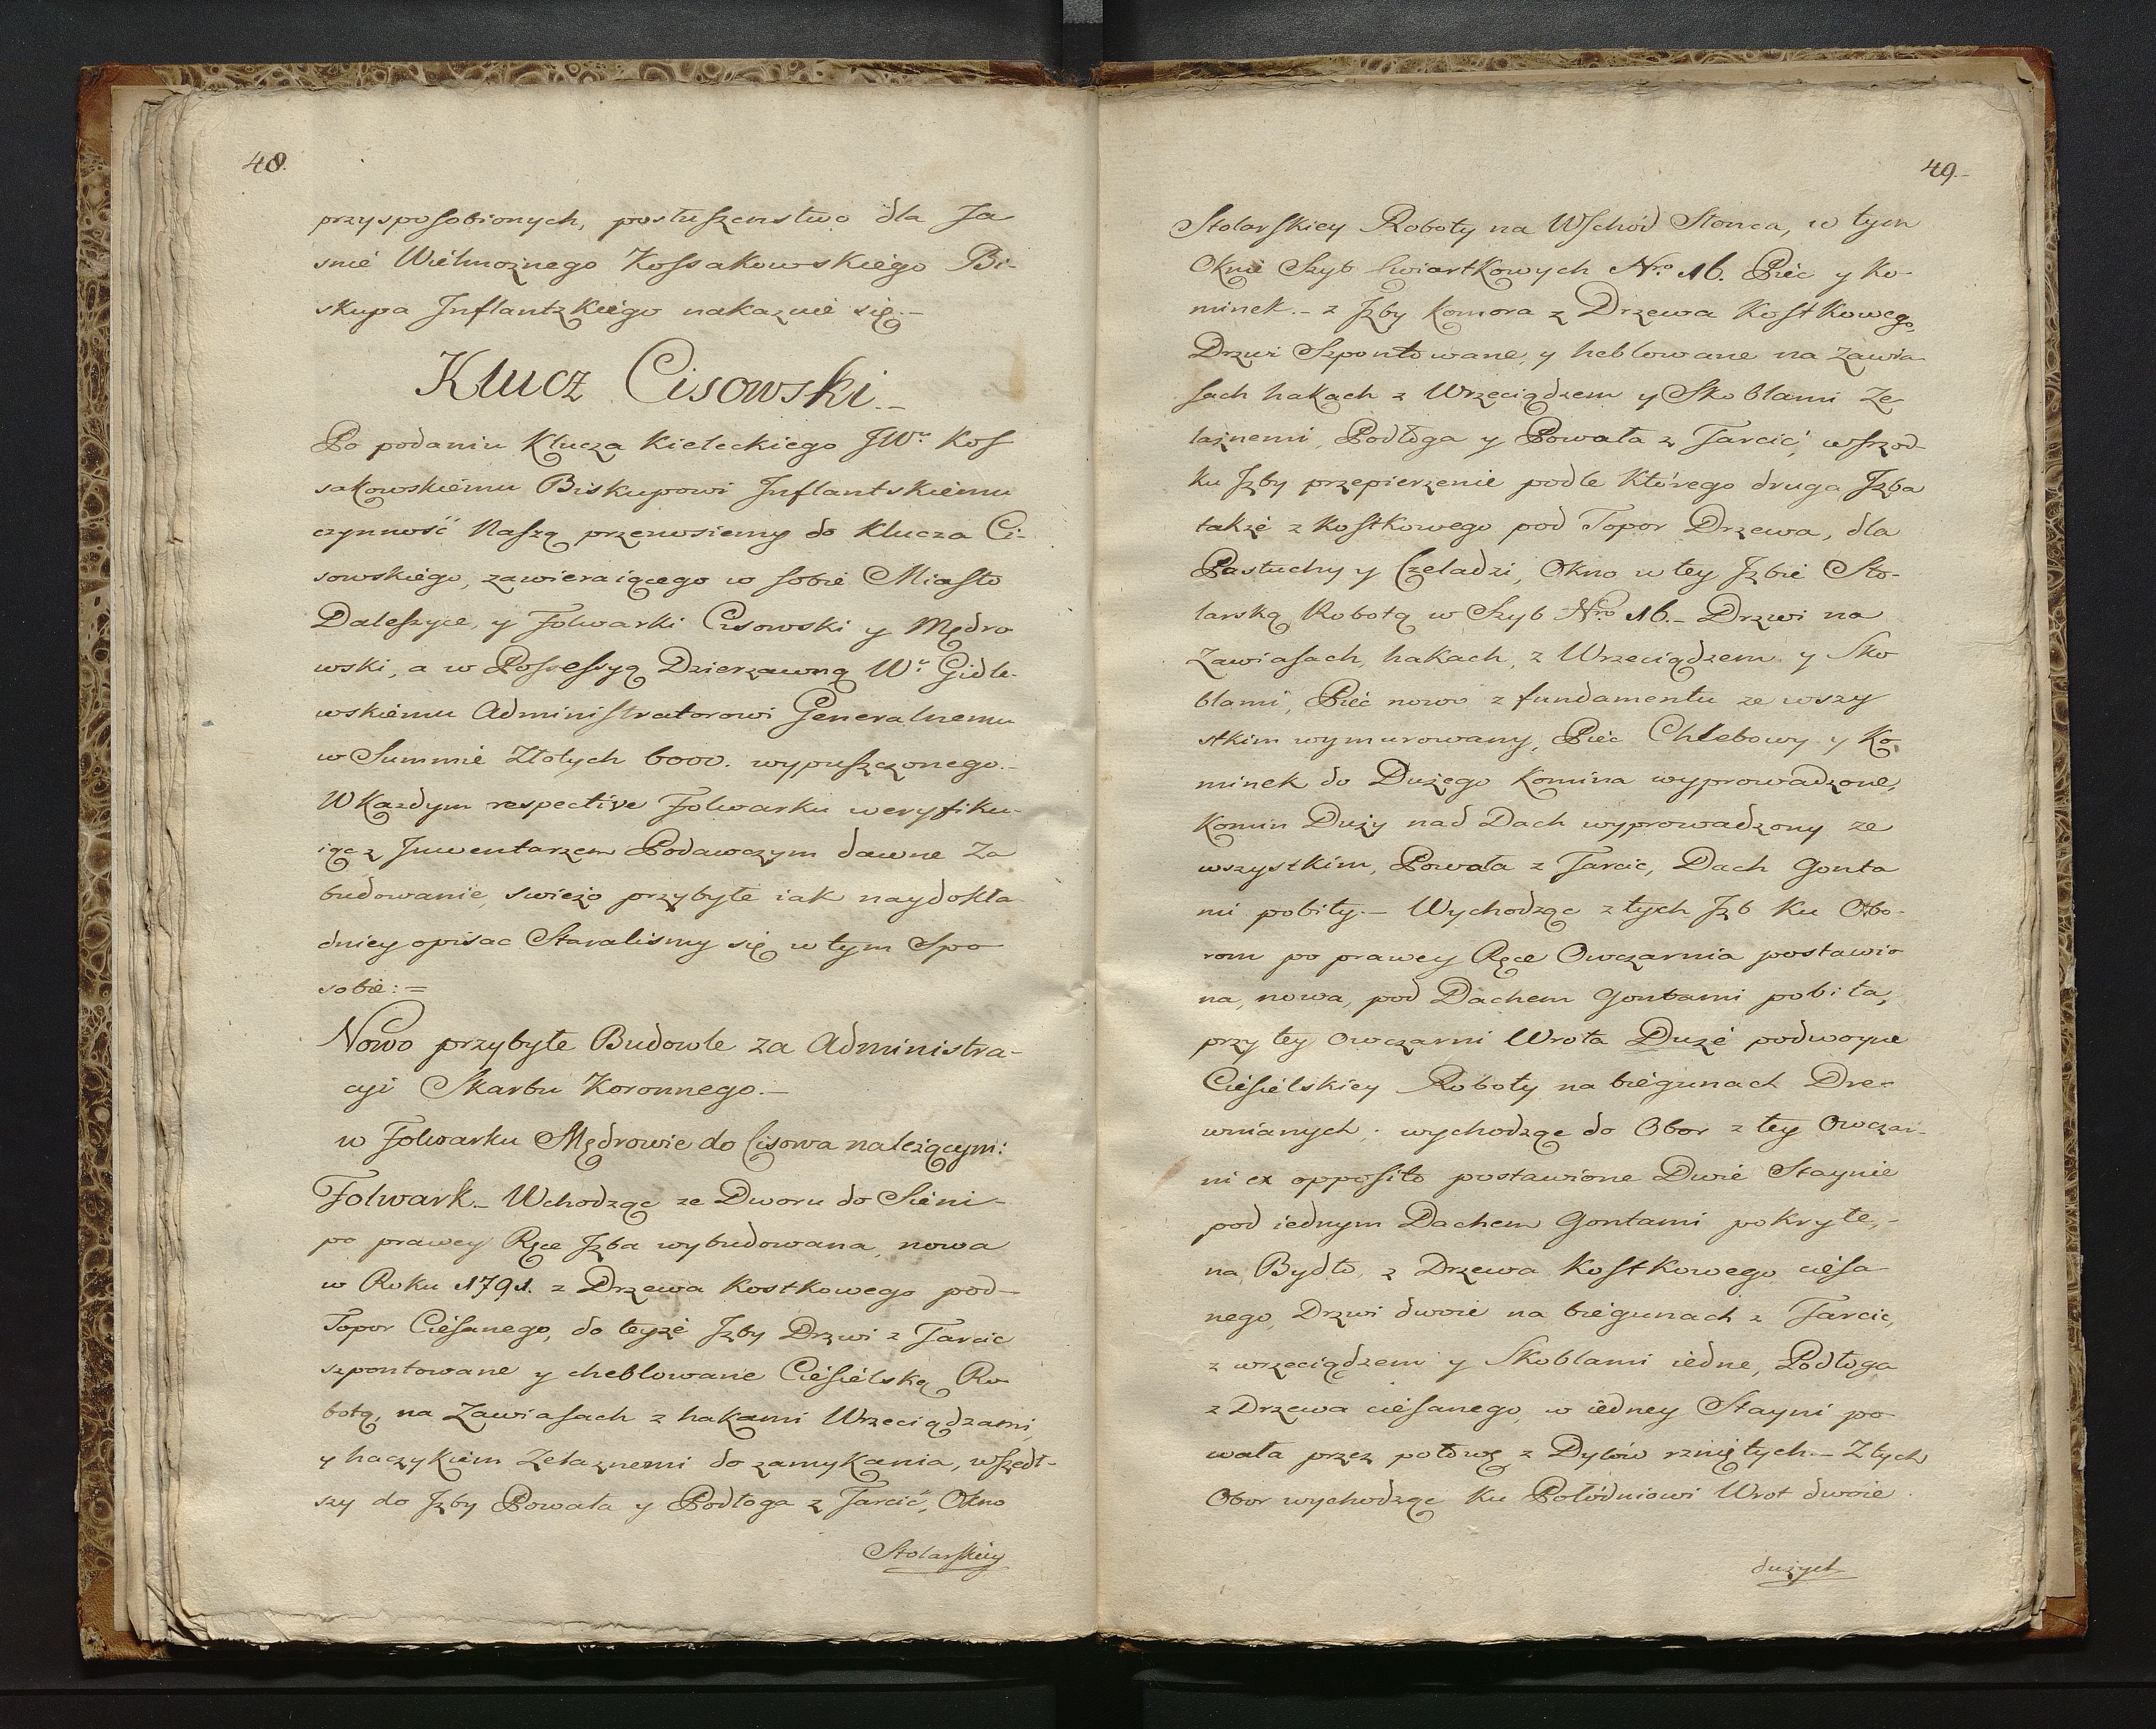 48.
przysposobionych, posłuszenstwo dla Ja
snié Wiélmożnego Kossakowskiégo Bi-
skupa Jnflantzkiégo nakazuié się.-
Klucz Cisowski.-
Po podaniu Klucza Kieleckiego JWu. Kos
sakowskiému Biskupowi Jnflantskiému
czynność Naszą przenosiemy do Klucza Ci-
sowskiégo, zawieraiącego w sobié Miasto
Daleszyce, y Folwarki Cisowski y Mędro
wski, a w Possessyą Dzierzawną Wu. Gidle-
wskiému Administratorowi Generalnemu
w Summié Złotych 6000. wypuszczonego.-
W Kazdym respective Folwarku weryfiku-
iąc z Jnwentarzem Podawczym dawne Za
budowanie, swieżo przybyłe iak naydokła
dniey opisac Staralismy się w tym Spo
sobié:=
Nowo przybyłe Budowle za Administra-
cyi Skarbu Koronnego.-
w Folwarku Mędrowie do Cisowa należącym:
Folwark.- Wchodząc ze Dworu do Siéni-
po prawey Ręce Jzba wybudowana, nowa
w Roku 1791. z Drzewa Kostkowego pod-
Topor Ciésanego, do teyżé Jzby Drzwi z Tarcic
szpontowane y cheblowane Ciésiélską Ro
botą, na Zawiasach z hakami Wrzeciądzami,
y haczykiem Zelaznemi do zamykania, wszedł-
szy do Jzby Powała y Podłoga z Tarcić, Okno
Stolarskiey
49.-
Stolarskiey Roboty na Wschód Słonca, w tym
Oknié Szyb Cwiartkowych Nro. 16. Piéc y Ko-
minek.- z Jzby komora z Drzewa Kostkowego,
Drzwi Szpontowane, y heblowane na zawia
sach hakach z Wrzeciądzem y Skoblami Ze
laznemi, Podłoga y Powała z Tarcić, wszrod-
ku Jzby przepierzenié podle Którego druga Jzba
takżé z Kostkowego pod Topor Drzewa, dla
Pastuchy y Czeladzi, Okno w tey Jzbié Sto-
larską Robotą w Szyb Nro 16.- Drzwi na
Zawiasach, hakach, z Wrzeciądzem y Sko
blami, Piéć nowo z fundamentu ze wszy
stkim wymurowany, Piéc Chlebowy y Ko,
minek do Dużego Komina wyprowadzone,
Komin Duży nad Dach wyprowadzony ze
wszystkim, Powała z Tarcic, Dach Gonta
mi pobity.- Wychodząc z tych Jzb Ku Obo-
rom po prawey Ręce Owczarnia postawio
na, nowa, pod Dachem Gontami pobita,
przy tey Owczarni Wrota Dużé podwoyne
Ciésiélskiey Roboty na biégunach Dre-
wnianych; wychodząc do Obor z tey Owczar-
ni ex opposito postawione Dwié Staynie
pod iednym Dachem Gontami pokryte,-
na Bydło, z Drzewa Kostkowego ciésa
nego, Drzwi dwoie na biégunach z Tarcic,
z wrzeciądzem y Skoblami iedne, Podłoga
z Drzewa ciésanego, w iédney Stayni po
wała przez połowę z Dylów rzniętych.- Z tych
Obor wychodząc Ku Połódniowi Wrot dwoie
dużych